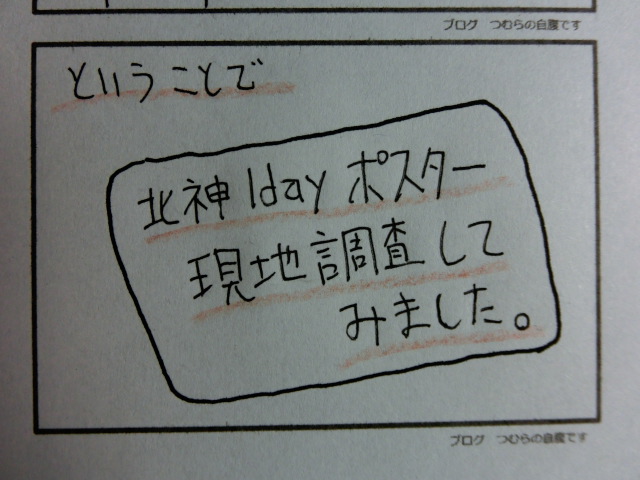 ブログ つむらの自腹です
ということで
北神1dayポスター
現地調査して
みました。
ブログ つむらの自腹です